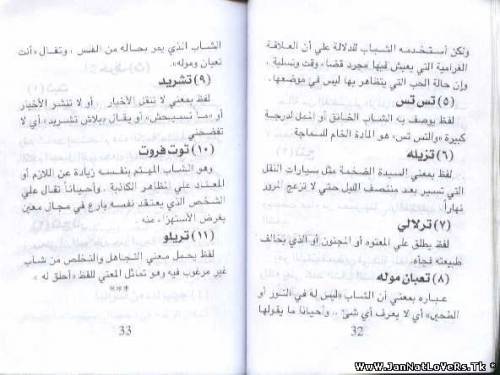 ولكن أستخدمه الشباب للدلالة علي أن العلاقة
الغرامية التي يعيش فيها مجرد قضاء وقت وتسلية ،
وإن حالة الحب التي يتظاهر بها ليس في موضعها .
(٥) تس تس
لفظ يوصف به الشاب الخانق أو الممل لدرجة
كبيرة «والتس تس» هو المادة الخام للسماجة
(٦) تزيله
لفظ بمعني السيدة الضخمة مثل سيارات النقل
التي تسير بعد منتصف الليل حتي لا تزعج المرور
نهاراً.
(٧) ترلالي
لفظ يطلق علي المعتوه أو المجنون أو الذي يخالف
طبيعته فجأه.
(٨) تعبان موله
عباره بمعني أن الشاب «ليس له في التنور أو
الطحين» أي لا يعرف أي شئ .. وأحيانا ما يقولها
32
الشاب الذي يمر بحاله من الفلس ، وتقال «أنت
تعبان وموله».
(٩) تشريد
لفظ بمعني لا تنقل الأخبار .. أو لا تنشر الأخبار
أو «ما تسيحش» أو يقال «بلاش تشريد» أي لا
تفضحني
(١٠) توت فروت
وهو الشاب المهتم بنفسه زيادة عن اللازم أو
المعتمد علي المظاهر الكاذبة . وأحياناً تقال علي
الشخص الذي يعتقد نفسه بارع في مجال معين
بغرض الأستهزاء منه .
(١١) تريلو
لفظ يحمل معني التجاهل والتخلص من شاب
غير مرغوب فيه وهو تماثل المعني للفظ «أحلق له» .
***
33
WwW.JanNatLoVeRs.Tk ©